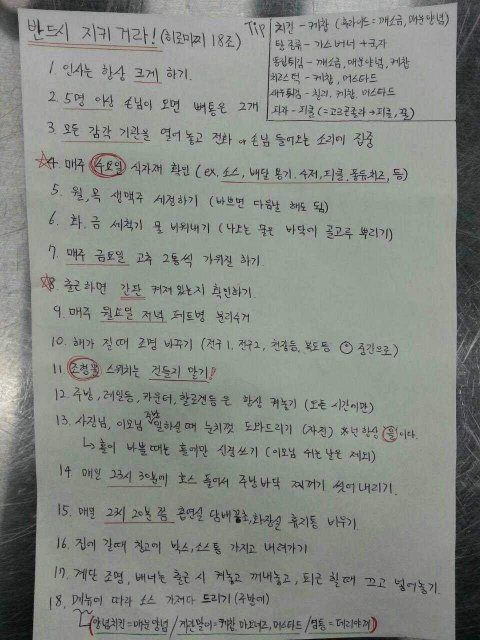 반드시 지키거라! (히로미찌 18조)
Tip
치킨 - 케찹 (후라이드 = 깨소금, 매운양념)
탕 종류 - 가스버너 + 국자
모듬튀김 - 깨소금, 매운양념, 케찹
치즈스틱 - 케찹, 머스타드
새우튀김 - 칠리, 케찹, 머스타드
피자 - 피클 (= 고르곤졸라 → 피클, 꿀)
1. 인사는 항상 크게 하기.
2. 5명 이상 손님이 오면 뻐통은 2개
3. 모든 감각 기관을 열어 놓고 전화 or 손님 들어오는 소리에 집중
☆4. 매주 수요일 식자재 확인 (ex. 소스, 배달 용기, 수저, 피클, 퐁듀치즈, 등)
5. 월, 목 생맥주 세정하기 (바쁘면 다음날 해도 됨)
6. 화, 금 세척기 물 비워내기 (나오는 물은 바닥에 골고루 뿌리기)
7. 매주 금요일 고추 2통씩 가위질 하기.
☆8. 출근하면 간판 켜져있는지 확인하기.
9. 매주 월요일 저녁 페트병 분리수거
10. 해가 질 때 조명 바꾸기 (전구1, 전구2, 천장등, 복도등 중간으로)
11. 조경물 스위치는 건들지 말기!!
12. 주방, 레일등, 카운터, 할로겐등은 항상 켜놓기 (모든 시간이만)
13. 사장님, 이모님 장보고 일하실 때 눈치껏 도와드리기 (자진) 넌 항상 을이다.
↳ 홀이 바쁠 때는 홀에만 신경쓰기 (이모님 쉬는 날은 제외)
14. 매일 23시 30분에 호스 들어서 주방바닥 찌꺼기 씻어 내리기.
15. 매일 23시 20분쯤 흡연실 담배꽁초, 화장실 휴지통 비우기
16. 집에 갈 때 창고에 박스, 소스통 가지고 내려가기
17. 계단 조명, 배너는 출근 시 켜놓고 꺼내놓고, 퇴근 할 때 끄고 넣어놓기.
18. 메뉴에 따라 소스 가져다 드리기 (주방에)
↳ (양념치킨 = 매운양념 / 계란말이 = 케찹, 마요네즈, 머스타드 / 짬뽕 = 데리야끼)